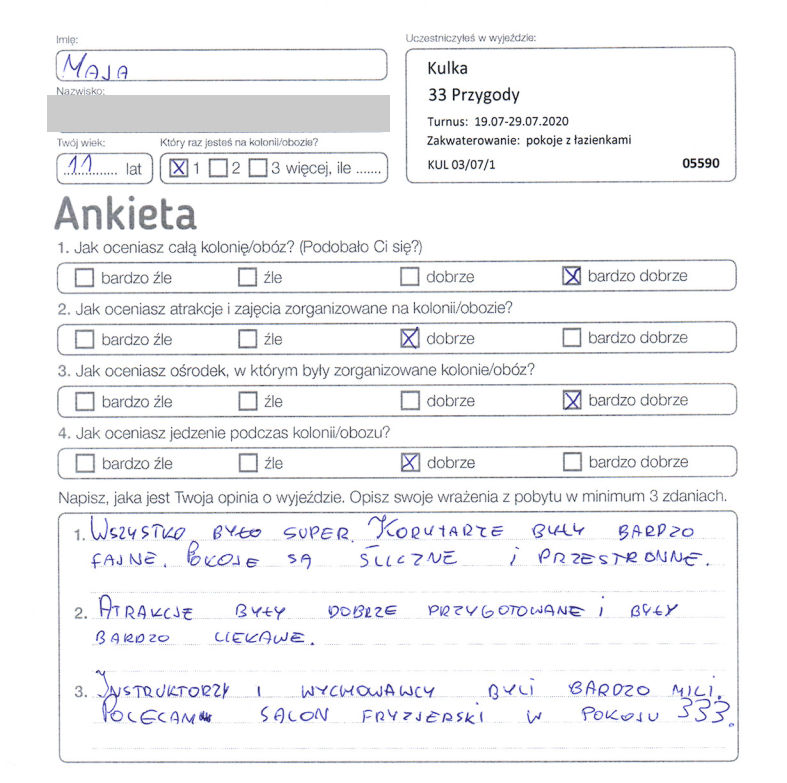 Imię:
MAJA
Nazwisko:
Twój wiek:
11 lat
Który raz jesteś na kolonii/obozie?
1 2 3 więcej, ile .......
Uczestniczyłeś w wyjeździe:
Kulka
33 Przygody
Turnus: 19.07-29.07.2020
Zakwaterowanie: pokoje z łazienkami
KUL 03/07/1 05590
Ankieta
1. Jak oceniasz całą kolonię/obóz? (Podobało Ci się?)
bardzo źle źle dobrze bardzo dobrze
2. Jak oceniasz atrakcje i zajęcia zorganizowane na kolonii/obozie?
bardzo źle źle dobrze bardzo dobrze
3. Jak oceniasz ośrodek, w którym były zorganizowane kolonie/obóz?
bardzo źle źle dobrze bardzo dobrze
4. Jak oceniasz jedzenie podczas kolonii/obozu?
bardzo źle źle dobrze bardzo dobrze
Napisz, jaka jest Twoja opinia o wyjeździe. Opisz swoje wrażenia z pobytu w minimum 3 zdaniach.
1. WSZYSTKO BYŁO SUPER. KORYTARZE BYŁY BARDZO
FAJNE. POKOJE SĄ ŚLICZNE I PRZESTRONNE.
2. ATRAKCJE BYŁY DOBRZE PRZYGOTOWANE I BYŁY
BARDZO CIEKAWE.
3. INSTRUKTORZY I WYCHOWAWCY BYLI BARDZO MILI.
POLECAM SALON FRYZJERSKI W POKOJU 333.